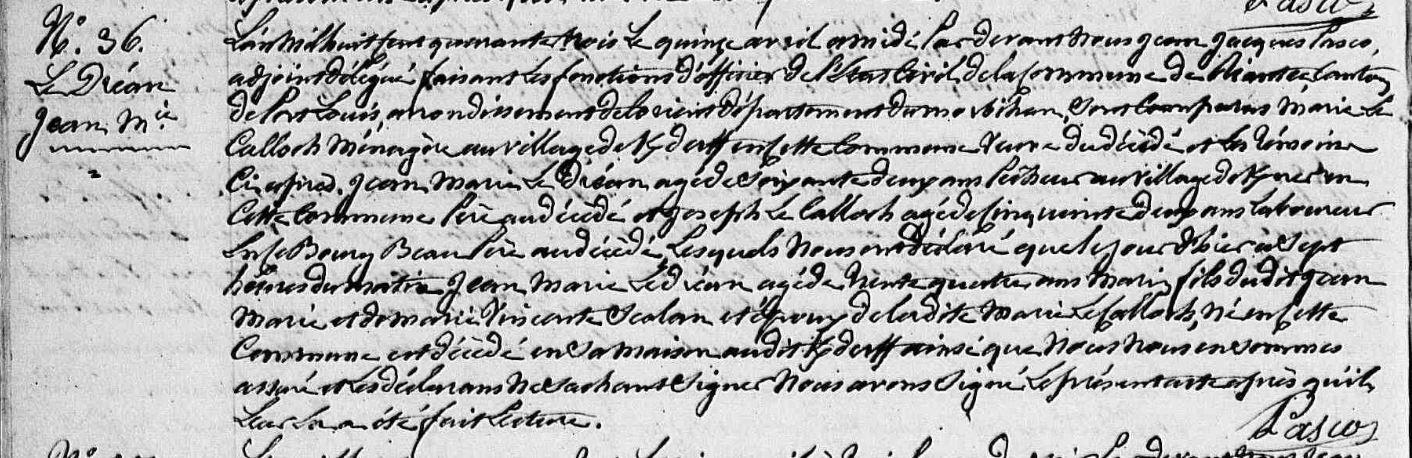 N°. 36.
Le Dréan
Jean Mie
L'an Mil huit cent quarante trois Le quinze avril a midi Par devant Nous Jean Jacques Pasco,
adjoint délégué faisant les fonctions d'officier de l'état Civil de la Commune de Riantec Canton
de Port Louis, arrondissement de Lorient département du morbihan, Sont Comparus Marie Le
Calloch Ménagère au village de en cette Commune Veuve du décédé et les témoins
Ci après. Jean Marie Le Dréan agé de Soixante deux ans Pêcheur au village de en
Cette Commune Père au décédé et Joseph Le Calloch agé de Cinquante deux ans Laboureur
En ce Bourg Beau Père au décédé, Lesquels Nous ont déclaré que le jour d'hier à Sept
heures du matin Jean Marie Le dréan agé de trente quatre ans Marin, fils dudit Jean
Marie et de marie Vincente Scolan et époux de ladite Marie Le Calloch, Né en Cette
Commune est décédé en Sa maison audit ainsi que Nous Nous en Sommes
assuré et Les déclarans Ne Sachant Signer Nous avons Signé Le présent acte après qu'il
Leur en a été fait Lecture.
Pasco